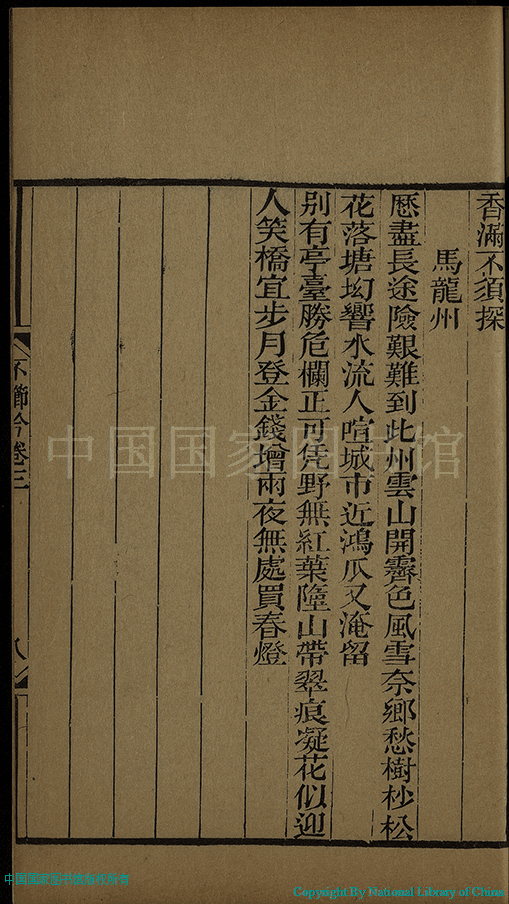 香滿不須探
馬龍州
厯盡長途險艱難到此州雲山開霽色風雪奈鄉愁樹杪松
花落塘坳響水流人喧城市近鴻爪又淹留
别有亭臺勝危欄正可凭野無紅葉墮山帶翠痕凝花似迎
人笑橋宜步月登金錢增兩夜無處買春燈
不節吟卷三
八
中国国家图书馆
中国国家图书馆版权所有
Copyright By National Library of China